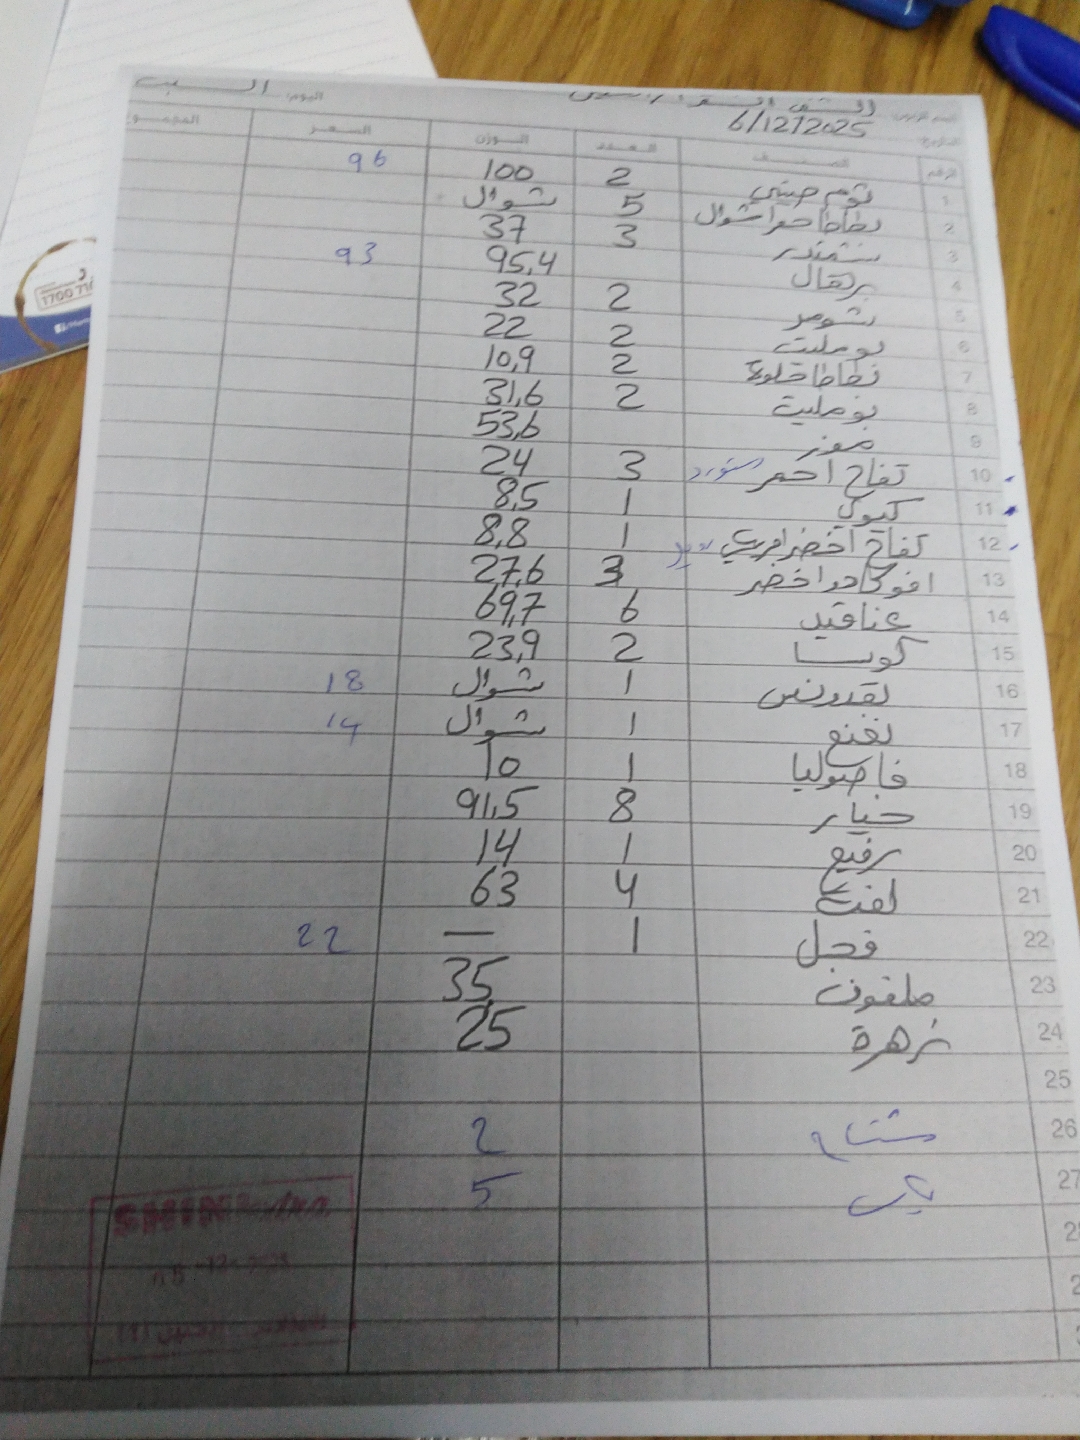 اليوم: السبت
التاريخ: 6/12/2025
الرقم الصنف العدد الوزن السعر المجموع
1 ثوم صيني 2 100 96
2 بطاطا حمرا شوال 5 شوال
3 شمندر 3 37
4 برتقال 95,4 93
5 شومر 2 32
6 بومليت 2 22
7 بطاطا حلوة 2 10,9
8 بومليت 2 31,6
9 موز 53,6
10 تفاح احمر 3 24
11 كيوي 1 8,5
12 تفاح اخضر 1 8,8
13 افوكادو اخضر 3 27,6
14 عناقيد 6 69,7
15 كوسا 2 23,9
16 بقدونس 1 شوال 18
17 نعنع 1 شوال 14
18 فاصوليا 1 10
19 خيار 8 91,5
20 رفيع 1 14
21 لفت 4 63
22 فجل 1 — 22
23 ملفوف 35
24 زهرة 25
25
26 2
27 5
1700